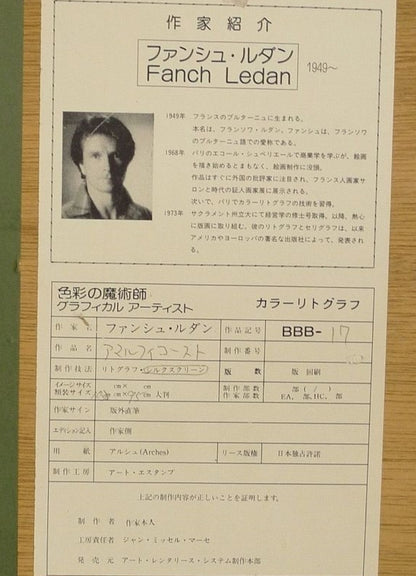 作家紹介
ファンシュ・ルダン
Fanch Ledan
1949～
1949年 フランスのブルターニュに生まれる。
本名は、フランソワ・ルダン。ファンシュは、フランソワ
のブルターニュ語での愛称である。
1968年 パリのエコール・シュペリエールで商業学を学ぶが、絵画
を描き始めるとまもなく、絵画制作に没頭。
作品はすぐに外国の批評家に注目され、フランス人画家サ
ロンと時代の証人画家展に展示される。
次いで、パリでカラーリトグラフの技術を習得。
1973年 サクラメント州立大にて経営学の修士号取得、以降、熱心
に版画に取り組む。彼のリトグラフとセリグラフは、以来
アメリカやヨーロッパの著名な出版社によって、発表され
る。
色彩の魔術師
グラフィカル アーティスト カラーリトグラフ
作家名 ファンシュ・ルダン 作品記号 BBB-17
作品名 アマルフィコースト 制作番号
制作技法 リトグラフ・シルクスクリーン 版数 版 回刷
イメージサイズ cm× cm 制作部数 部 ( / )
額装サイズ cm× cm 大判 作家部数 EA. 部、HC. 部
作家サイン 版外直筆
エディション記入 作家側
用紙 アルシュ(Arches) リース版権 日本独占許諾
制作工房 アート・エスタンプ
上記の制作内容が正しいことを証明します。
制作者 作家本人
工房責任者 ジャン・ミッセル・マーセ
発売元 アート・レンタリース・システム制作本部